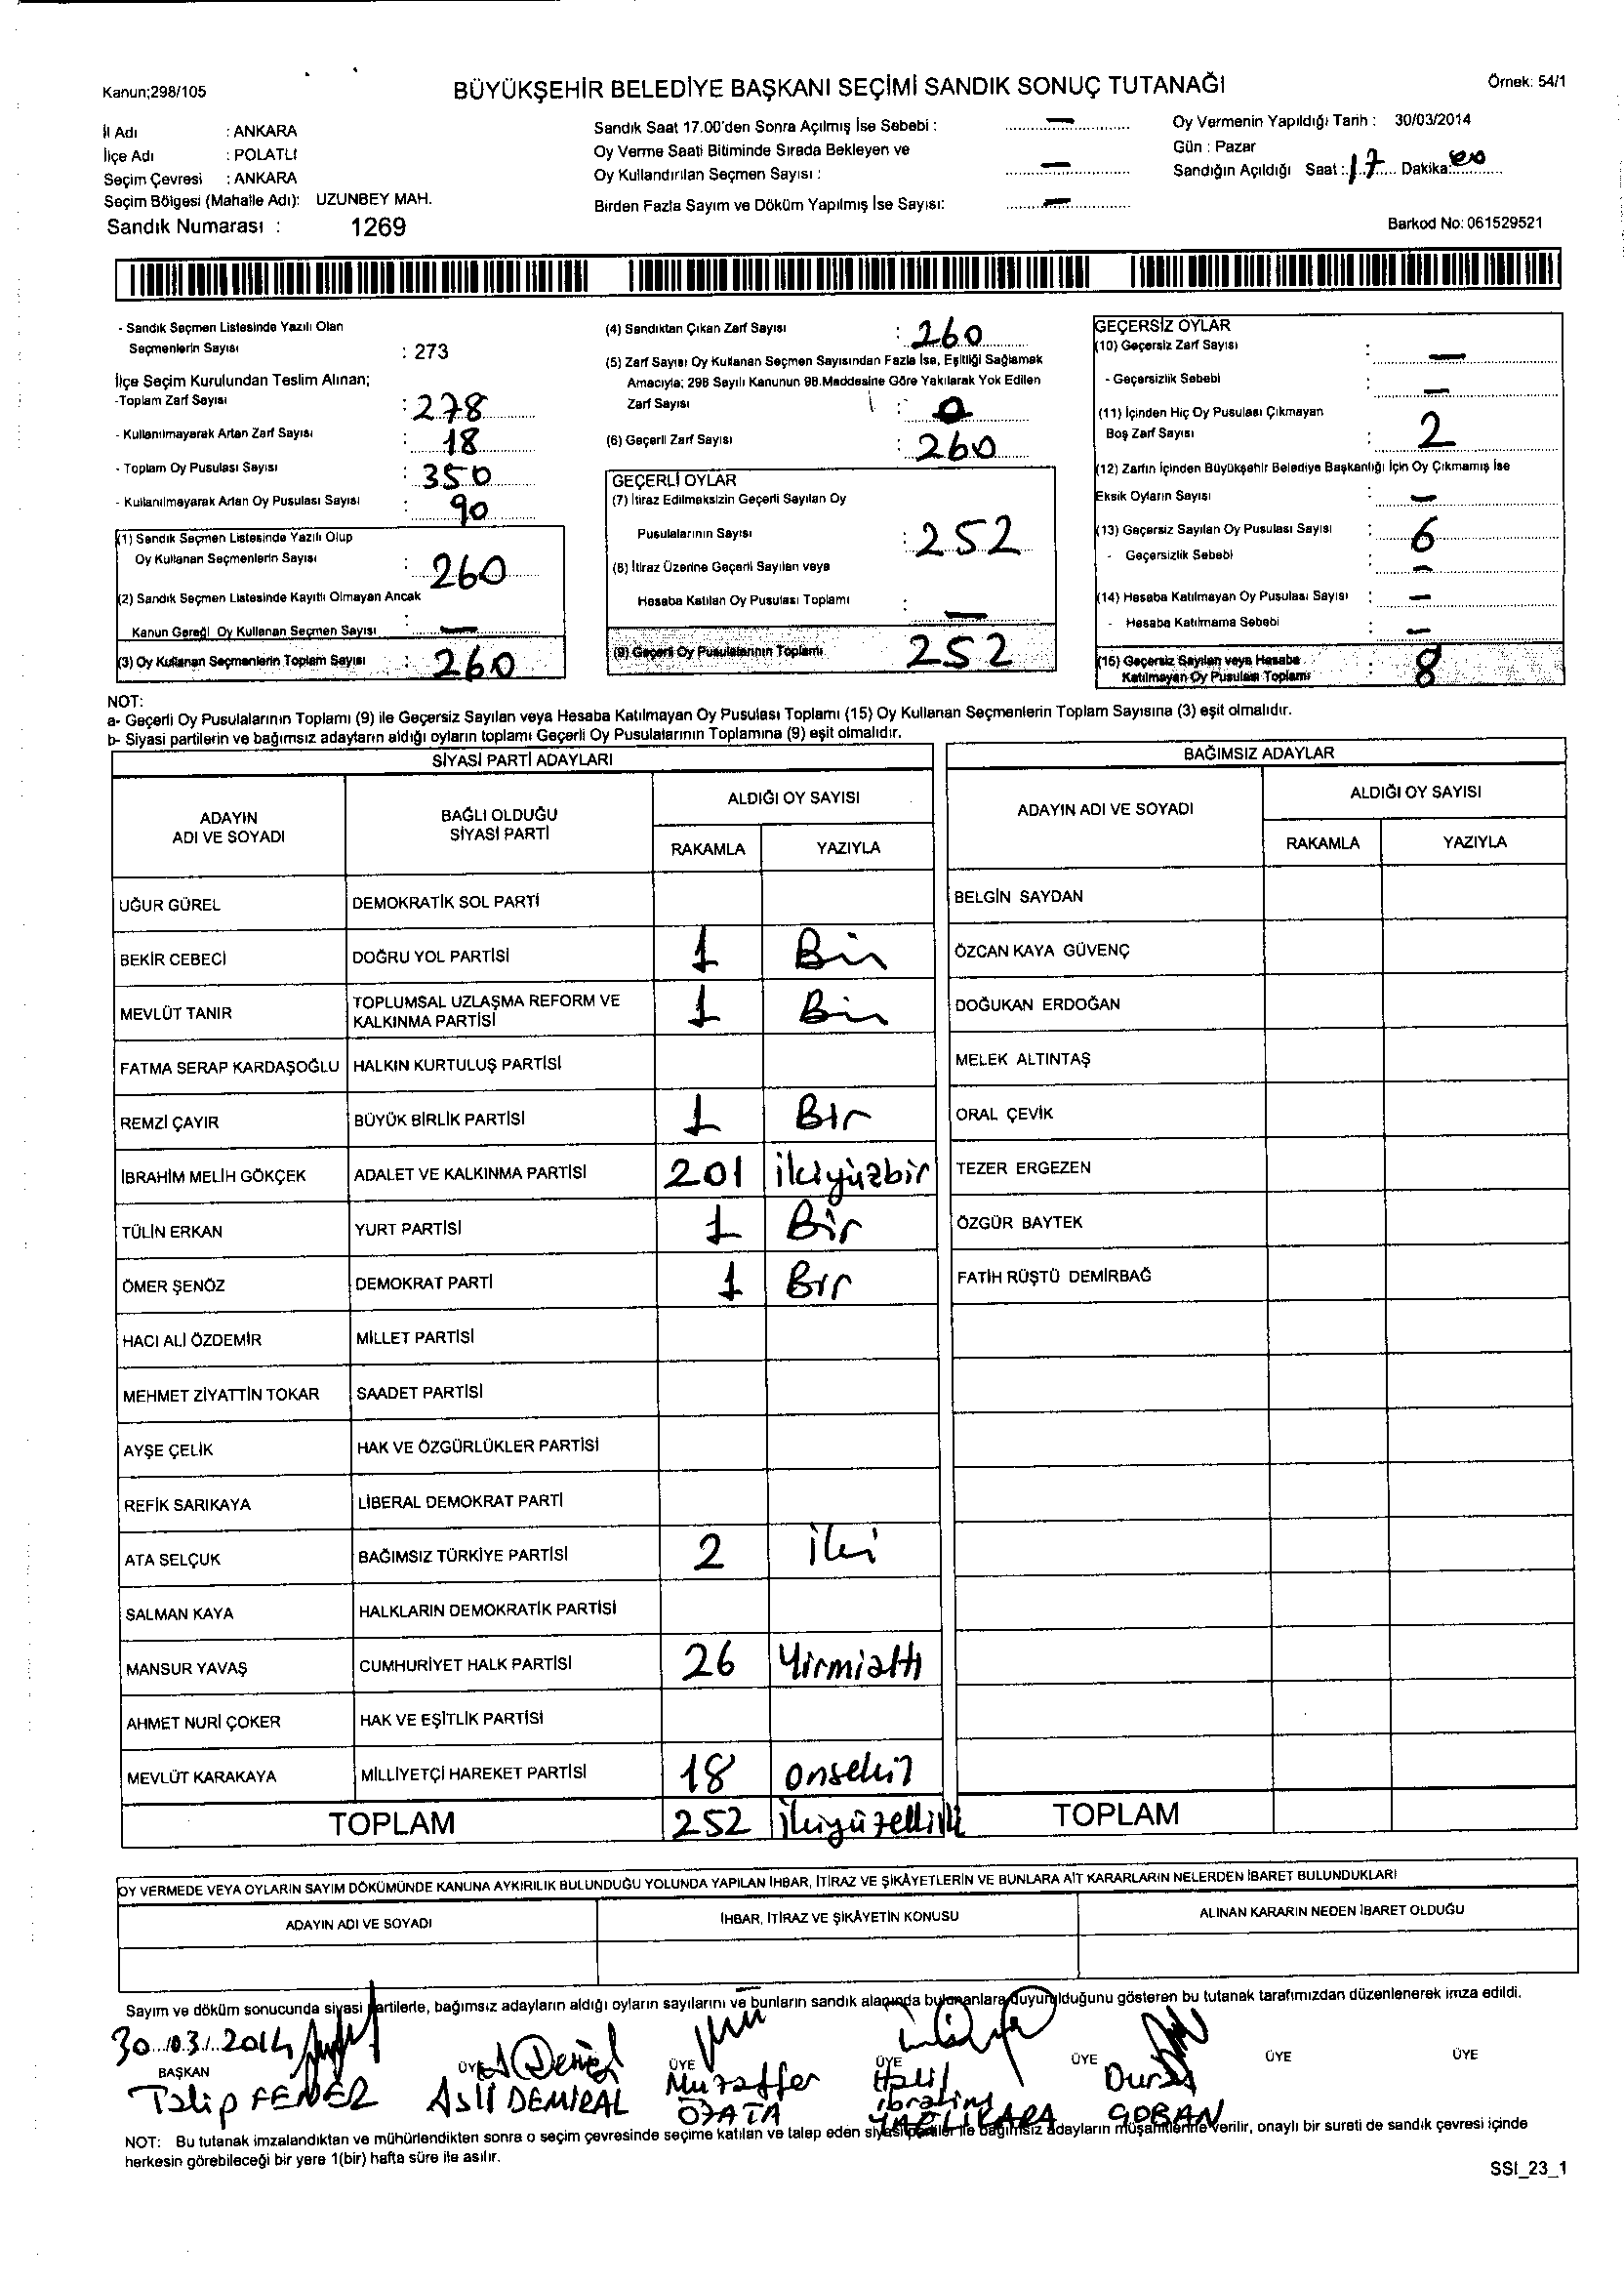 Kanun;298/105
BÜYÜKŞEHİR BELEDİYE BAŞKANI SEÇİMİ SANDIK SONUÇ TUTANAĞI
Örnek: 54/1
İl Adı : ANKARA
İlçe Adı : POLATLI
Seçim Çevresi : ANKARA
Seçim Bölgesi (Mahalle Adı): UZUNBEY MAH.
Sandık Numarası : 1269
Sandık Saat 17.00'den Sonra Açılmış İse Sebebi : —
Oy Verme Saati Bitiminde Sırada Bekleyen ve
Oy Kullandırılan Seçmen Sayısı : —
Birden Fazla Sayım ve Döküm Yapılmış İse Sayısı: —
Oy Vermenin Yapıldığı Tarih : 30/03/2014
Gün : Pazar
Sandığın Açıldığı Saat : 17 Dakika: 00
Barkod No: 061529521
- Sandık Seçmen Listesinde Yazılı Olan
Seçmenlerin Sayısı : 273
İlçe Seçim Kurulundan Teslim Alınan;
-Toplam Zarf Sayısı : 278
- Kullanılmayarak Artan Zarf Sayısı : 18
- Toplam Oy Pusulası Sayısı : 350
- Kullanılmayarak Artan Oy Pusulası Sayısı : 90
(1) Sandık Seçmen Listesinde Yazılı Olup
Oy Kullanan Seçmenlerin Sayısı : 260
(2) Sandık Seçmen Listesinde Kayıtlı Olmayan Ancak
Kanun Gereği Oy Kullanan Seçmen Sayısı : —
(3) Oy Kullanan Seçmenlerin Toplam Sayısı : 260
(4) Sandıktan Çıkan Zarf Sayısı : 260
(5) Zarf Sayısı Oy Kullanan Seçmen Sayısından Fazla İse, Eşitliği Sağlamak
Amacıyla; 298 Sayılı Kanunun 98.Maddesine Göre Yakılarak Yok Edilen
Zarf Sayısı : 0
(6) Geçerli Zarf Sayısı : 260
GEÇERLİ OYLAR
(7) İtiraz Edilmeksizin Geçerli Sayılan Oy
Pusulalarının Sayısı : 252
(8) İtiraz Üzerine Geçerli Sayılan veya
Hesaba Katılan Oy Pusulası Toplamı : —
(9) Geçerli Oy Pusulalarının Toplamı 252
GEÇERSİZ OYLAR
(10) Geçersiz Zarf Sayısı : —
- Geçersizlik Sebebi : —
(11) İçinden Hiç Oy Pusulası Çıkmayan
Boş Zarf Sayısı : 2
(12) Zarfın İçinden Büyükşehir Belediye Başkanlığı İçin Oy Çıkmamış İse
Eksik Oyların Sayısı : —
(13) Geçersiz Sayılan Oy Pusulası Sayısı : 6
- Geçersizlik Sebebi : —
(14) Hesaba Katılmayan Oy Pusulası Sayısı : —
- Hesaba Katılmama Sebebi : —
(15) Geçersiz Sayılan veya Hesaba
Katılmayan Oy Pusulası Toplamı : 8
NOT:
a- Geçerli Oy Pusulalarının Toplamı (9) ile Geçersiz Sayılan veya Hesaba Katılmayan Oy Pusulası Toplamı (15) Oy Kullanan Seçmenlerin Toplam Sayısına (3) eşit olmalıdır.
b- Siyasi partilerin ve bağımsız adayların aldığı oyların toplamı Geçerli Oy Pusulalarının Toplamına (9) eşit olmalıdır.
SİYASİ PARTİ ADAYLARI
ADAYIN ADI VE SOYADI
BAĞLI OLDUĞU SİYASİ PARTİ
ALDIĞI OY SAYISI
RAKAMLA YAZIYLA
UĞUR GÜREL DEMOKRATİK SOL PARTİ
BEKİR CEBECİ DOĞRU YOL PARTİSİ 1 Bir
MEVLÜT TANIR TOPLUMSAL UZLAŞMA REFORM VE KALKINMA PARTİSİ 1 Bir
FATMA SERAP KARDAŞOĞLU HALKIN KURTULUŞ PARTİSİ
REMZİ ÇAYIR BÜYÜK BİRLİK PARTİSİ 1 Bir
İBRAHİM MELİH GÖKÇEK ADALET VE KALKINMA PARTİSİ 201 ikiyüzbir
TÜLİN ERKAN YURT PARTİSİ 1 Bir
ÖMER ŞENÖZ DEMOKRAT PARTİ 1 Bir
HACI ALİ ÖZDEMİR MİLLET PARTİSİ
MEHMET ZİYATTİN TOKAR SAADET PARTİSİ
AYŞE ÇELİK HAK VE ÖZGÜRLÜKLER PARTİSİ
REFİK SARIKAYA LİBERAL DEMOKRAT PARTİ
ATA SELÇUK BAĞIMSIZ TÜRKİYE PARTİSİ 2 iki
SALMAN KAYA HALKLARIN DEMOKRATİK PARTİSİ
MANSUR YAVAŞ CUMHURİYET HALK PARTİSİ 26 Yirmialtı
AHMET NURİ ÇOKER HAK VE EŞİTLİK PARTİSİ
MEVLÜT KARAKAYA MİLLİYETÇİ HAREKET PARTİSİ 18 onsekiz
TOPLAM 252 ikiyüzelliiki
BAĞIMSIZ ADAYLAR
ADAYIN ADI VE SOYADI
ALDIĞI OY SAYISI
RAKAMLA YAZIYLA
BELGİN SAYDAN
ÖZCAN KAYA GÜVENÇ
DOĞUKAN ERDOĞAN
MELEK ALTINTAŞ
ORAL ÇEVİK
TEZER ERGEZEN
ÖZGÜR BAYTEK
FATİH RÜŞTÜ DEMİRBAĞ
TOPLAM
OY VERMEDE VEYA OYLARIN SAYIM DÖKÜMÜNDE KANUNA AYKIRILIK BULUNDUĞU YOLUNDA YAPILAN İHBAR, İTİRAZ VE ŞİKÂYETLERİN VE BUNLARA AİT KARARLARIN NELERDEN İBARET BULUNDUKLARI
ADAYIN ADI VE SOYADI
İHBAR, İTİRAZ VE ŞİKÂYETİN KONUSU
ALINAN KARARIN NEDEN İBARET OLDUĞU
Sayım ve döküm sonucunda siyasi partilerle, bağımsız adayların aldığı oyların sayılarını ve bunların sandık alanında bulunanlara duyurulduğunu gösteren bu tutanak tarafımızdan düzenlenerek imza edildi.
30.03.2014
BAŞKAN ÜYE ÜYE ÜYE ÜYE ÜYE ÜYE
Talip FENER
Aslı DEMİRAL
Muzaffer ÖZATA
Halil ibrahim
ÇOBAN
NOT: Bu tutanak imzalandıktan ve mühürlendikten sonra o seçim çevresinde seçime katılan ve talep eden siyasi partiler ile bağımsız adayların müşahitlerine verilir, onaylı bir sureti de sandık çevresi içinde
herkesin görebileceği bir yere 1(bir) hafta süre ile asılır.
SSI_23_1